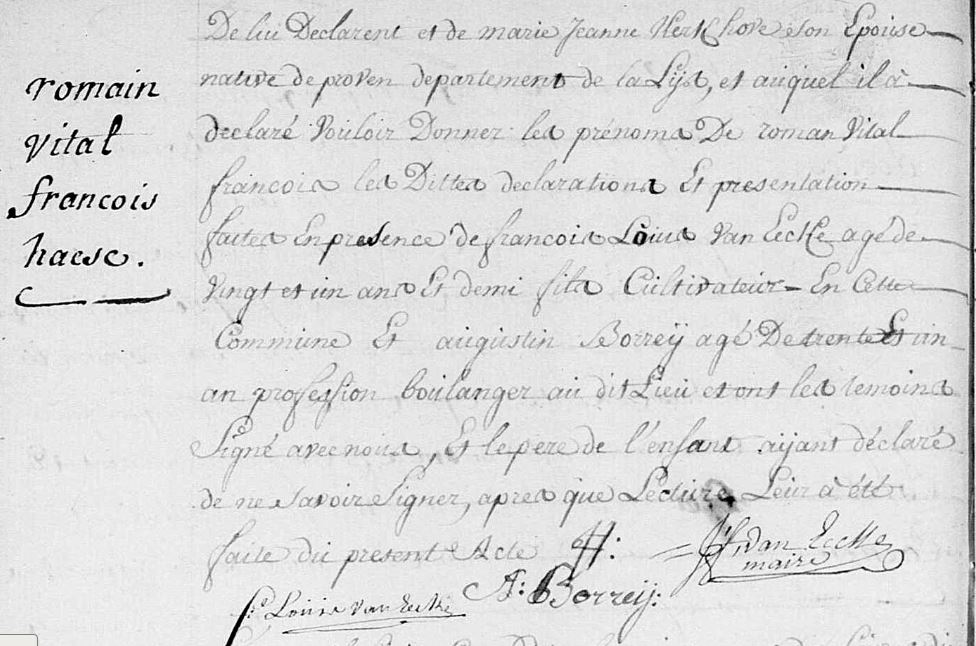 romain
vital
francois
haese.
De lui Declarent et de marie Jeanne Verkhove son Epouse
native de proven departement de la Lys, et auquel il à
declaré Vouloir Donner les prénoms De roman Vital
francois les Dittes declarations Et presentation
faites En presence de francois Louis Van Eecke agé de
Vingt et un ans Et demi fils Cultivateur En Cette
Commune Et augustin Borreÿ agé De trente Et un
an profession boulanger au dit Lieu et ont les temoins
Signé avec nous, Et le pere de l'enfant aÿant déclaré
de ne Savoir Signer, apres que Lecture Leur à été
faite du present Acte
van Eecke
maire
A: Borreij:
fr Louis van Eecke